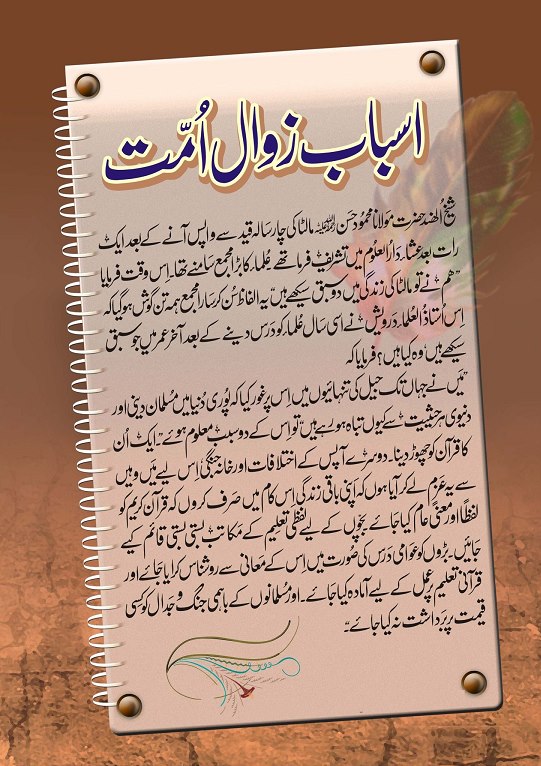 اسباب زوال اُمّت
شیخُ الہند حضرت مولانا محمود حسن رحمۃ اللہ علیہ مالٹا کی چار سالہ قید سے واپس آنے کے بعد ایک
رات بعد عشاء دَارُ العلوم میں تشریف فرما تھے عُلماء کا بڑا مجمع سامنے تھا۔ اِس وقت فرمایا
”ہم نے تو مالٹا کی زندگی میں دو سبق سیکھے ہیں“ یہ الفاظ سُن کر سارا مجمع ہمہ تن گوش ہو گیا کہ
اِس اُستاذُ العُلماء درویش نے اسی سال عُلماء کو درس دینے کے بعد آخر عمر میں جو سبق
سیکھے ہیں وہ کیا ہیں؟ فرمایا کہ
”میَں نے جہاں تک جیل کی تنہائیوں میں اِس پر غور کیا کہ پُوری دُنیا میں مُسلمان دینی اور
دنیوی ہر حیثیت سے کیوں تباہ ہو رہے ہیں“ تو اِس کے دو سبب معلوم ہوئے۔ ایک اُن
کا قرآن کو چھوڑ دینا۔ دوسرے آپس کے اختلافات اور خانہ جنگی اِس لیے میَں وہیں
سے یہ عزم لے کر آیا ہوں کہ اَپنی باقی زندگی اِس کام میں صَرف کروں کہ قرآن کریم کو
لفظاً اور معنیً عام کیا جائے بچّوں کے لیے لفظی تعلیم کے مکاتب بستی بستی قائم کیے
جائیں۔ بڑوں کو عوامی درس کی صُورت میں اِس کے معانی سے روشناس کرایا جائے اور
قرآنی تعلیم پر عمل کے لیے آمادہ کیا جائے۔ اور مُسلمانوں کے باہمی جنگ و جدال کو کسی
قیمت پر برَداشت نہ کیا جائے“۔